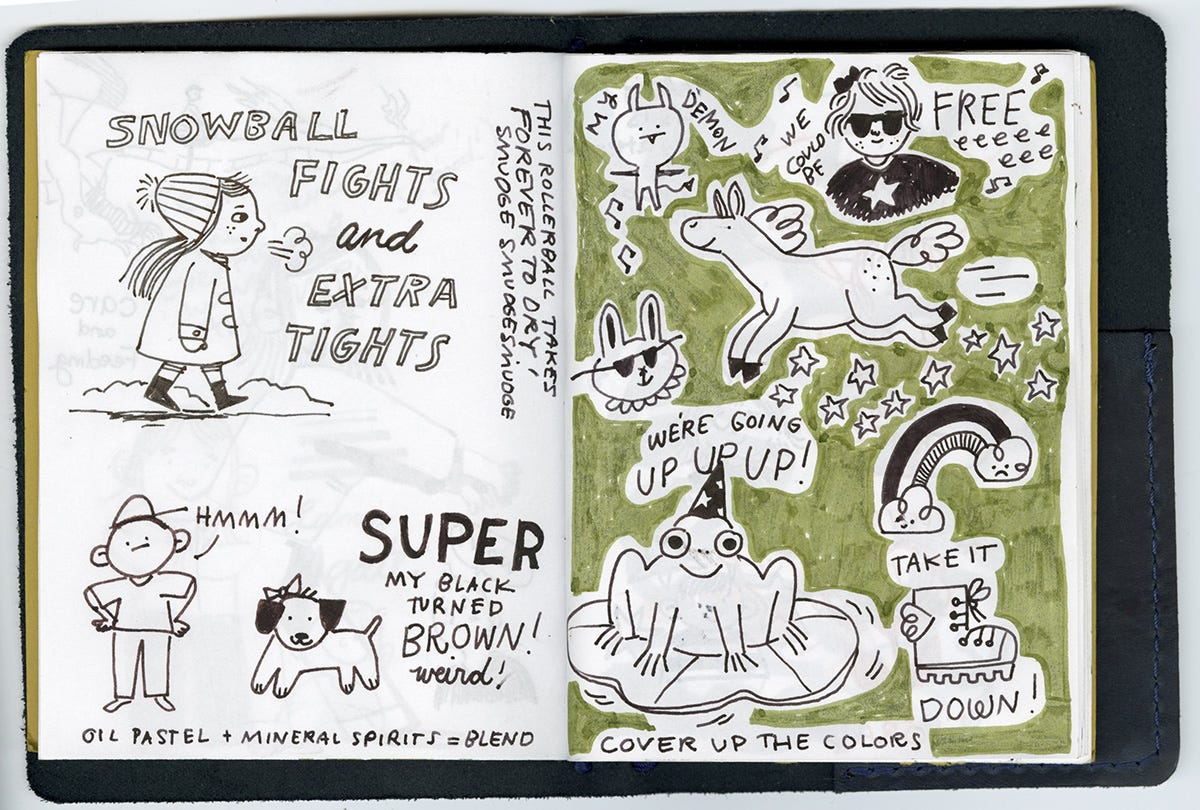 SNOWBALL
FIGHTS
and
EXTRA
TIGHTS
THIS ROLLERBALL TAKES
FOREVER TO DRY,
SMUDGE SMUDGESMUDGE
HMMM!
SUPER
MY BLACK
TURNED
BROWN!
weird!
OIL PASTEL + MINERAL SPIRITS = BLEND
DEMON
WE
COULD
BE
FREE
eeeee
eee
WE'RE GOING
UP UP UP!
TAKE IT
DOWN!
COVER UP THE COLORS
care
and
Feeding